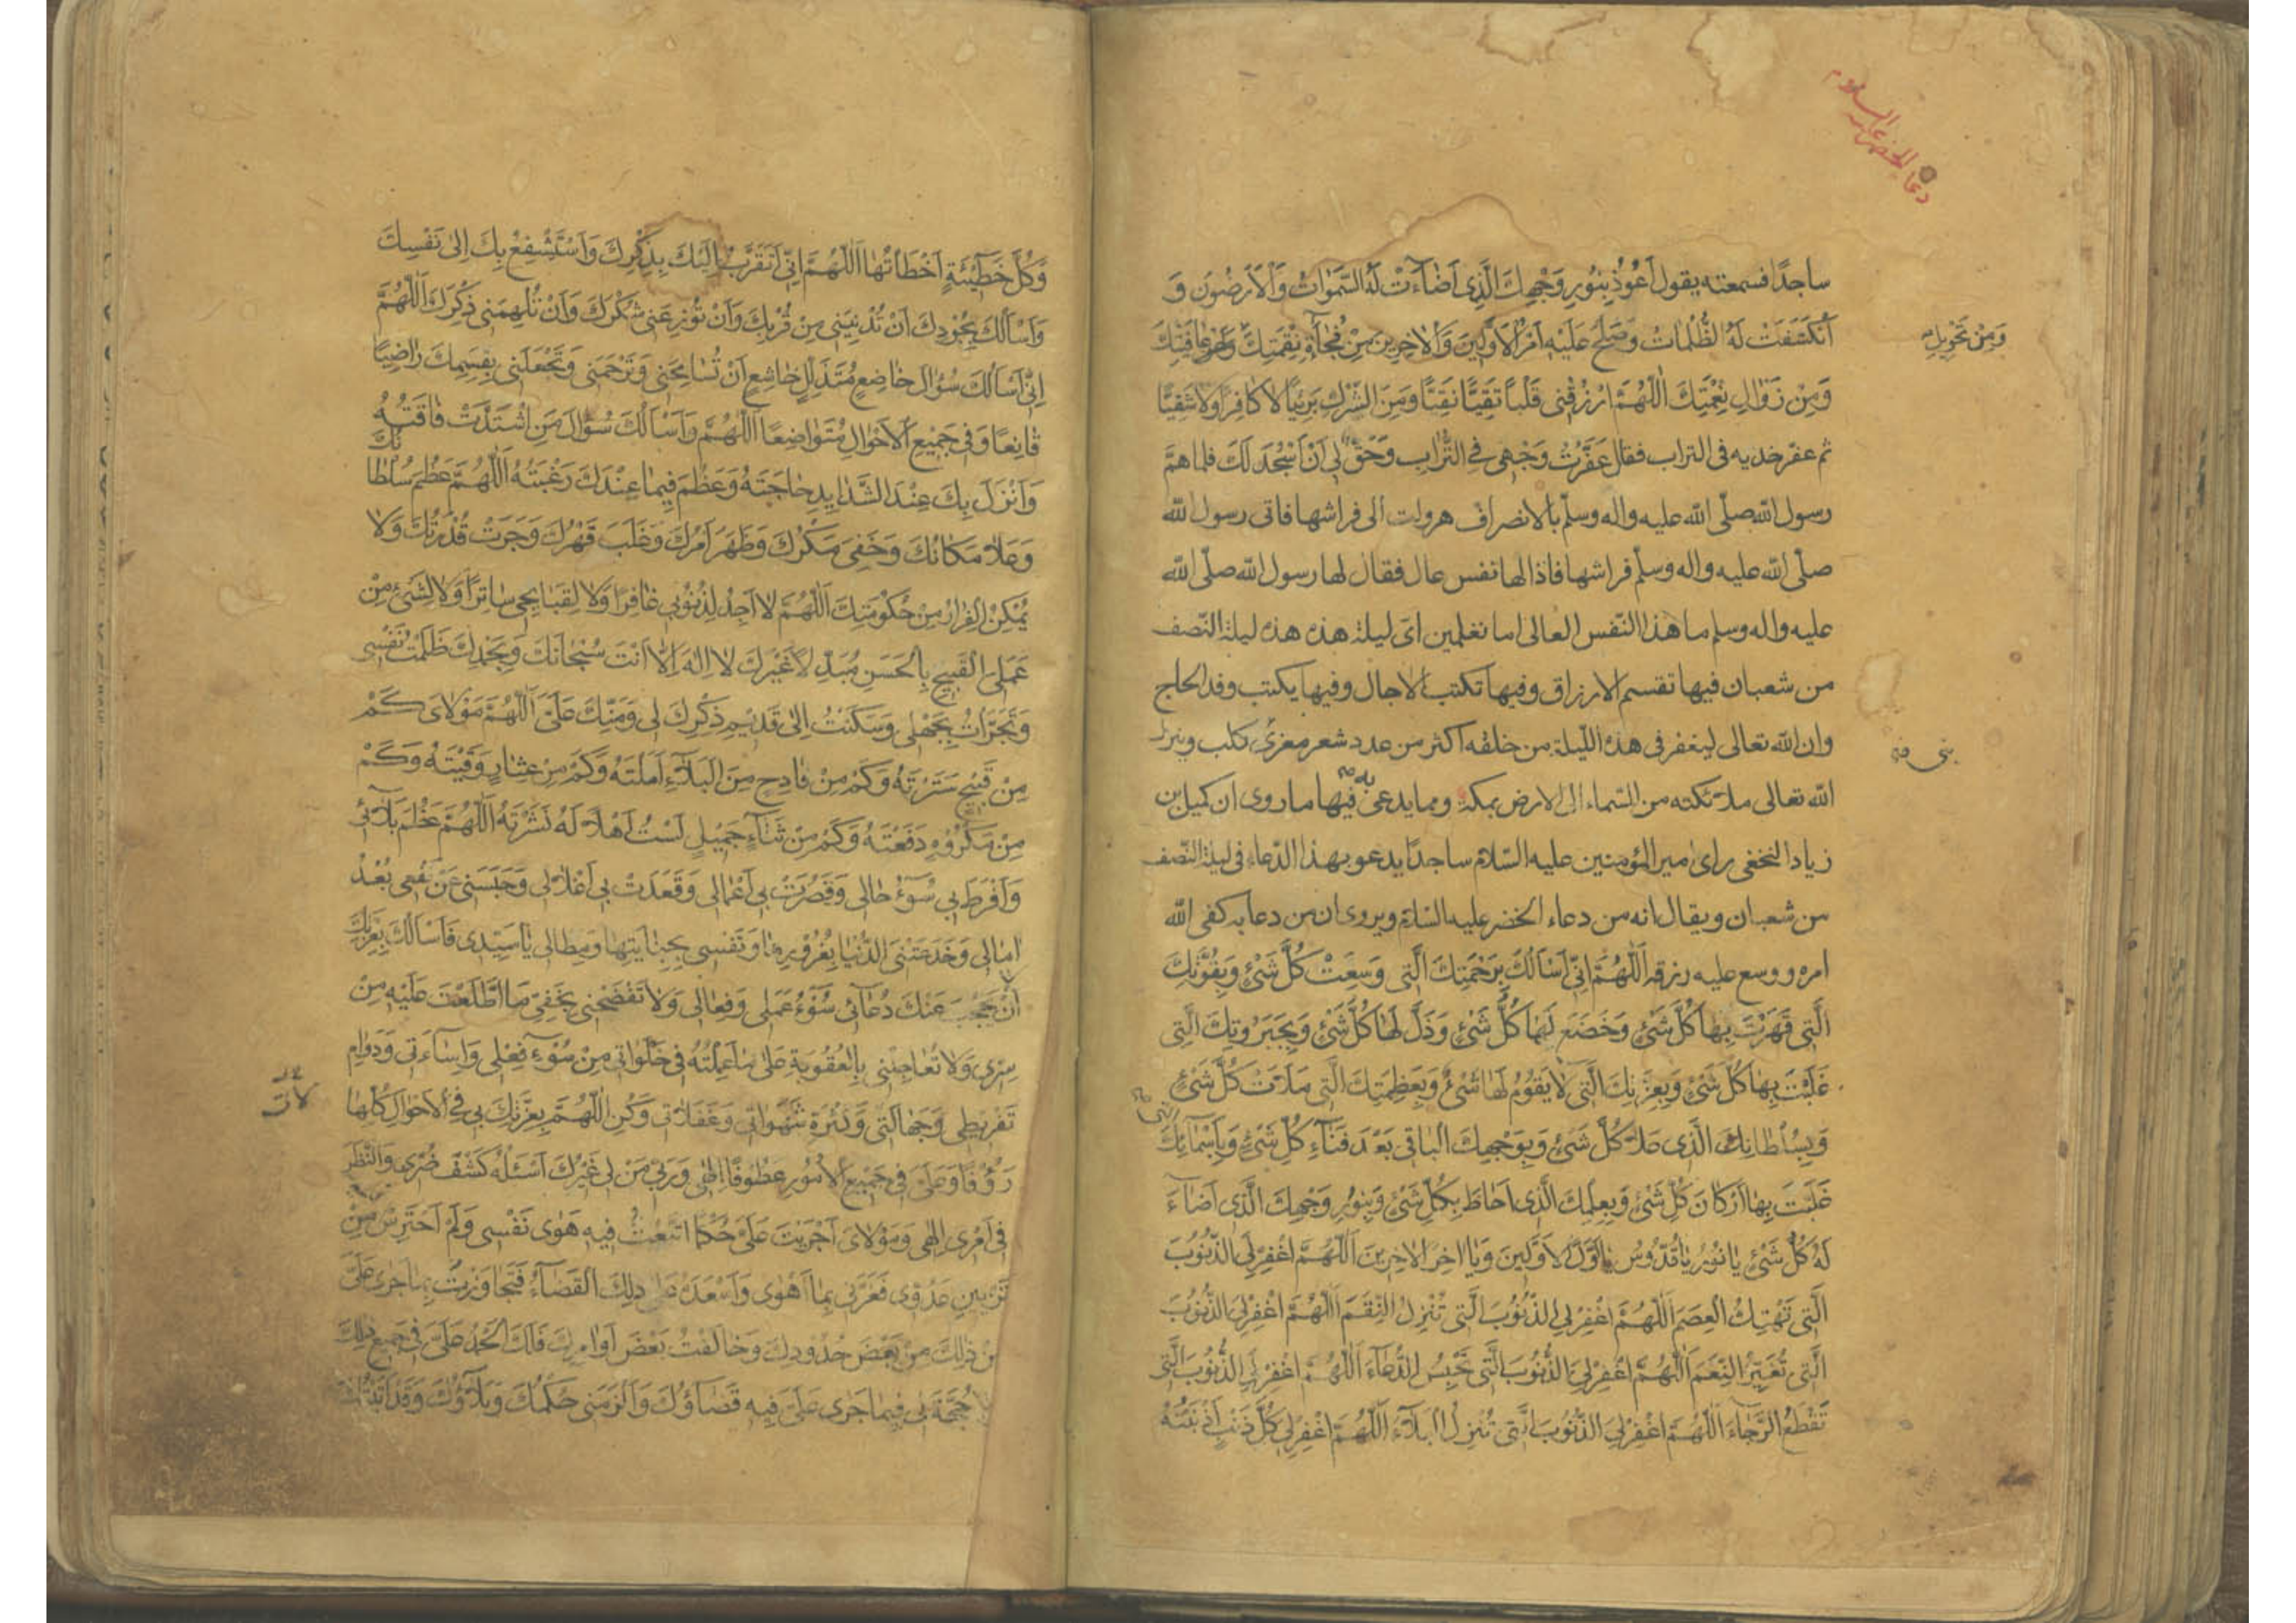 دعا الخضر عليه السلام
ساجدًا فسمعته يقول اَعُوذُ بِنُورِ وَجْهِكَ الَّذِى اَضَآءَتْ لَهُ السَّمٰوَاتُ وَالْاَرَضُونَ وَ
انْكَشَفَتْ لَهُ الظُّلُمَاتُ وَصَلُحَ عَلَيْهِ اَمْرُ الْاَوَّلِينَ وَالْاٰخِرِينَ مِنْ فُجْأَةِ نِقْمَتِكَ
وَمِنْ تَحْوِيلِ
وَمِنْ زَوَالِ نِعْمَتِكَ اَللّٰهُمَّ ارْزُقْنِى قَلْبًا تَقِيًّا نَقِيًّا وَمِنَ الشِّرْكِ بَرِيئًا لَا كَافِرًا وَلَا شَقِيًّا
ثم عفّر خديه فى التراب فقال عَفَّرْتُ وَجْهِى فِى التُّرَابِ وَحُقَّ لِى اَنْ اَسْجُدَ لَكَ فلما همّ
رسول الله صلّى الله عليه واله وسلّم بالانصراف هرولت الى فراشها فاتى رسول الله
صلّى الله عليه واله وسلّم فراشها فاذا لها نفس عال فقال لها رسول الله صلّى الله
عليه واله وسلم ما هذا النّفس العالى اما تعلمين اىّ ليلة هذه هذه ليلة النّصف
من شعبان فيها تقسم الارزاق وفيها تكتب الاجال وفيها يكتب وفد الحاج
وان الله تعالى ليغفر فى هذه اللّيلة من خلقه اكثر من عدد شعر معزى كلب وينزل
بنى
الله تعالى ملائكته من السّماء الى الارض بمكة ومما يدعى به فيها ما روى ان كميل بن
زياد النخعى راى امير المؤمنين عليه السّلام ساجدًا يدعو بهذا الدّعاء فى ليلة النّصف
من شعبان ويقال انه من دعاء الخضر عليه السّلام ويروى ان من دعا به كفى الله
امره ووسع عليه رزقه اَللّٰهُمَّ اِنِّى اَسْأَلُكَ بِرَحْمَتِكَ الَّتِى وَسِعَتْ كُلَّ شَىْءٍ وَبِقُوَّتِكَ
الَّتِى قَهَرْتَ بِهَا كُلَّ شَىْءٍ وَخَضَعَ لَهَا كُلُّ شَىْءٍ وَذَلَّ لَهَا كُلُّ شَىْءٍ وَبِجَبَرُوتِكَ الَّتِى
غَلَبْتَ بِهَا كُلَّ شَىْءٍ وَبِعِزَّتِكَ الَّتِى لَا يَقُومُ لَهَا شَىْءٌ وَبِعَظَمَتِكَ الَّتِى مَلَأَتْ كُلَّ شَىْءٍ
وَبِسُلْطَانِكَ الَّذِى عَلَا كُلَّ شَىْءٍ وَبِوَجْهِكَ الْبَاقِى بَعْدَ فَنَآءِ كُلِّ شَىْءٍ وَبِاَسْمَآئِكَ
الَّتِى
غَلَبَتْ بِهَا اَرْكَانَ كُلِّ شَىْءٍ وَبِعِلْمِكَ الَّذِى اَحَاطَ بِكُلِّ شَىْءٍ وَبِنُورِ وَجْهِكَ الَّذِى اَضَآءَ
لَهُ كُلُّ شَىْءٍ يَا نُورُ يَا قُدُّوسُ يَا اَوَّلَ الْاَوَّلِينَ وَيَا اٰخِرَ الْاٰخِرِينَ اَللّٰهُمَّ اغْفِرْ لِىَ الذُّنُوبَ
الَّتِى تَهْتِكُ الْعِصَمَ اَللّٰهُمَّ اغْفِرْ لِىَ الذُّنُوبَ الَّتِى تُنْزِلُ النِّقَمَ اَللّٰهُمَّ اغْفِرْ لِىَ الذُّنُوبَ
الَّتِى تُغَيِّرُ النِّعَمَ اَللّٰهُمَّ اغْفِرْ لِىَ الذُّنُوبَ الَّتِى تَحْبِسُ الدُّعَآءَ اَللّٰهُمَّ اغْفِرْ لِىَ الذُّنُوبَ الَّتِى
تَقْطَعُ الرَّجَآءَ اَللّٰهُمَّ اغْفِرْ لِىَ الذُّنُوبَ الَّتِى تُنْزِلُ الْبَلَآءَ اَللّٰهُمَّ اغْفِرْ لِى كُلَّ ذَنْبٍ اَذْنَبْتُهُ
وَكُلَّ خَطِيٓئَةٍ اَخْطَأْتُهَا اَللّٰهُمَّ اِنِّى اَتَقَرَّبُ اِلَيْكَ بِذِكْرِكَ وَاَسْتَشْفِعُ بِكَ اِلٰى نَفْسِكَ
وَاَسْاَلُكَ بِجُودِكَ اَنْ تُدْنِيَنِى مِنْ قُرْبِكَ وَاَنْ تُوزِعَنِى شُكْرَكَ وَاَنْ تُلْهِمَنِى ذِكْرَكَ اَللّٰهُمَّ
اِنِّى اَسْاَلُكَ سُؤَالَ خَاضِعٍ مُتَذَلِّلٍ خَاشِعٍ اَنْ تُسَامِحَنِى وَتَرْحَمَنِى وَتَجْعَلَنِى بِقِسَمِكَ رَاضِيًا
قَانِعًا وَفِى جَمِيعِ الْاَحْوَالِ مُتَوَاضِعًا اَللّٰهُمَّ وَاَسْاَلُكَ سُؤَالَ مَنِ اشْتَدَّتْ فَاقَتُهُ
وَاَنْزَلَ بِكَ عِنْدَ الشَّدَايِدِ حَاجَتَهُ وَعَظُمَ فِيمَا عِنْدَكَ رَغْبَتُهُ اَللّٰهُمَّ عَظُمَ سُلْطَانُكَ
وَعَلَا مَكَانُكَ وَخَفِىَ مَكْرُكَ وَظَهَرَ اَمْرُكَ وَغَلَبَ قَهْرُكَ وَجَرَتْ قُدْرَتُكَ وَلَا
يُمْكِنُ الْفِرَارُ مِنْ حُكُومَتِكَ اَللّٰهُمَّ لَا اَجِدُ لِذُنُوبِى غَافِرًا وَلَا لِقَبَايِحِى سَاتِرًا وَلَا لِشَىْءٍ مِنْ
عَمَلِىَ الْقَبِيحِ بِالْحَسَنِ مُبَدِّلًا غَيْرَكَ لَا اِلٰهَ اِلَّا اَنْتَ سُبْحَانَكَ وَبِحَمْدِكَ ظَلَمْتُ نَفْسِى
وَتَجَرَّأْتُ بِجَهْلِى وَسَكَنْتُ اِلٰى قَدِيمِ ذِكْرِكَ لِى وَمَنِّكَ عَلَىَّ اَللّٰهُمَّ مَوْلَاىَ كَمْ
مِنْ قَبِيحٍ سَتَرْتَهُ وَكَمْ مِنْ فَادِحٍ مِنَ الْبَلَآءِ اَمَلْتَهُ وَكَمْ مِنْ عِثَارٍ وَقَيْتَهُ وَكَمْ
مِنْ مَكْرُوهٍ دَفَعْتَهُ وَكَمْ مِنْ ثَنَآءٍ جَمِيلٍ لَسْتُ اَهْلًا لَهُ نَشَرْتَهُ اَللّٰهُمَّ عَظُمَ بَلَآئِى
وَاَفْرَطَ بِى سُوٓءُ حَالِى وَقَصُرَتْ بِى اَعْمَالِى وَقَعَدَتْ بِى اَغْلَالِى وَحَبَسَنِى عَنْ نَفْعِى بُعْدُ
اٰمَالِى وَخَدَعَتْنِى الدُّنْيَا بِغُرُورِهَا وَنَفْسِى بِجِنَايَتِهَا وَمِطَالِى يَا سَيِّدِى فَاَسْاَلُكَ بِعِزَّتِكَ
اَنْ لَا يَحْجُبَ عَنْكَ دُعَآئِى سُوٓءُ عَمَلِى وَفِعَالِى وَلَا تَفْضَحْنِى بِخَفِىِّ مَا اطَّلَعْتَ عَلَيْهِ مِنْ
سِرِّى وَلَا تُعَاجِلْنِى بِالْعُقُوبَةِ عَلٰى مَا عَمِلْتُهُ فِى خَلَوَاتِى مِنْ سُوٓءِ فِعْلِى وَاِسَآءَتِى وَدَوَامِ
تَفْرِيطِى وَجَهَالَتِى وَكَثْرَةِ شَهَوَاتِى وَغَفَلَاتِى وَكُنِ اللّٰهُمَّ بِعِزَّتِكَ بِى فِى الْاَحْوَالِ كُلِّهَا
رَؤُفًا وَعَلَىَّ فِى جَمِيعِ الْاُمُورِ عَطُوفًا اِلٰهِى وَرَبِّى مَنْ لِى غَيْرُكَ اَسْئَلُهُ كَشْفَ ضُرِّى وَالنَّظَرَ
فِى اَمْرِى اِلٰهِى وَمَوْلَاىَ اَجْرَيْتَ عَلَىَّ حُكْمًا اتَّبَعْتُ فِيهِ هَوٰى نَفْسِى وَلَمْ اَحْتَرِسْ مِنْ
تَزْيِينِ عَدُوِّى فَغَرَّنِى بِمَا اَهْوٰى وَاَسْعَدَهُ عَلٰى ذٰلِكَ الْقَضَآءُ فَتَجَاوَزْتُ بِمَا جَرٰى عَلَىَّ
مِنْ ذٰلِكَ مِنْ بَعْضِ حُدُودِكَ وَخَالَفْتُ بَعْضَ اَوَامِرِكَ فَلَكَ الْحَمْدُ عَلَىَّ فِى جَمِيعِ ذٰلِكَ
حُجَّةَ لِى فِيمَا جَرٰى عَلَىَّ فِيهِ قَضَآؤُكَ وَاَلْزَمَنِى حُكْمُكَ وَبَلَآؤُكَ وَقَدْ اَتَيْتُكَ